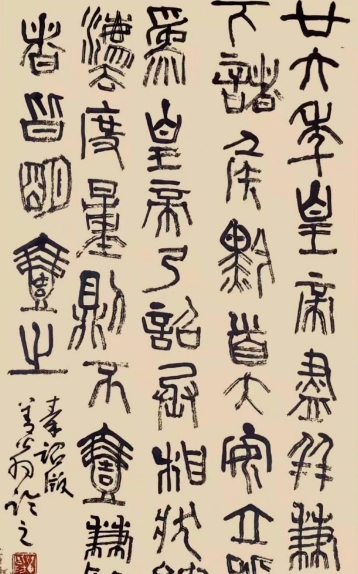 廿六年皇帝盡并兼
下諸侯黔首大安立號
為皇帝乃詔丞相狀綰
灋度量則不壹歉
者皆明壹之
秦詔版
臨之